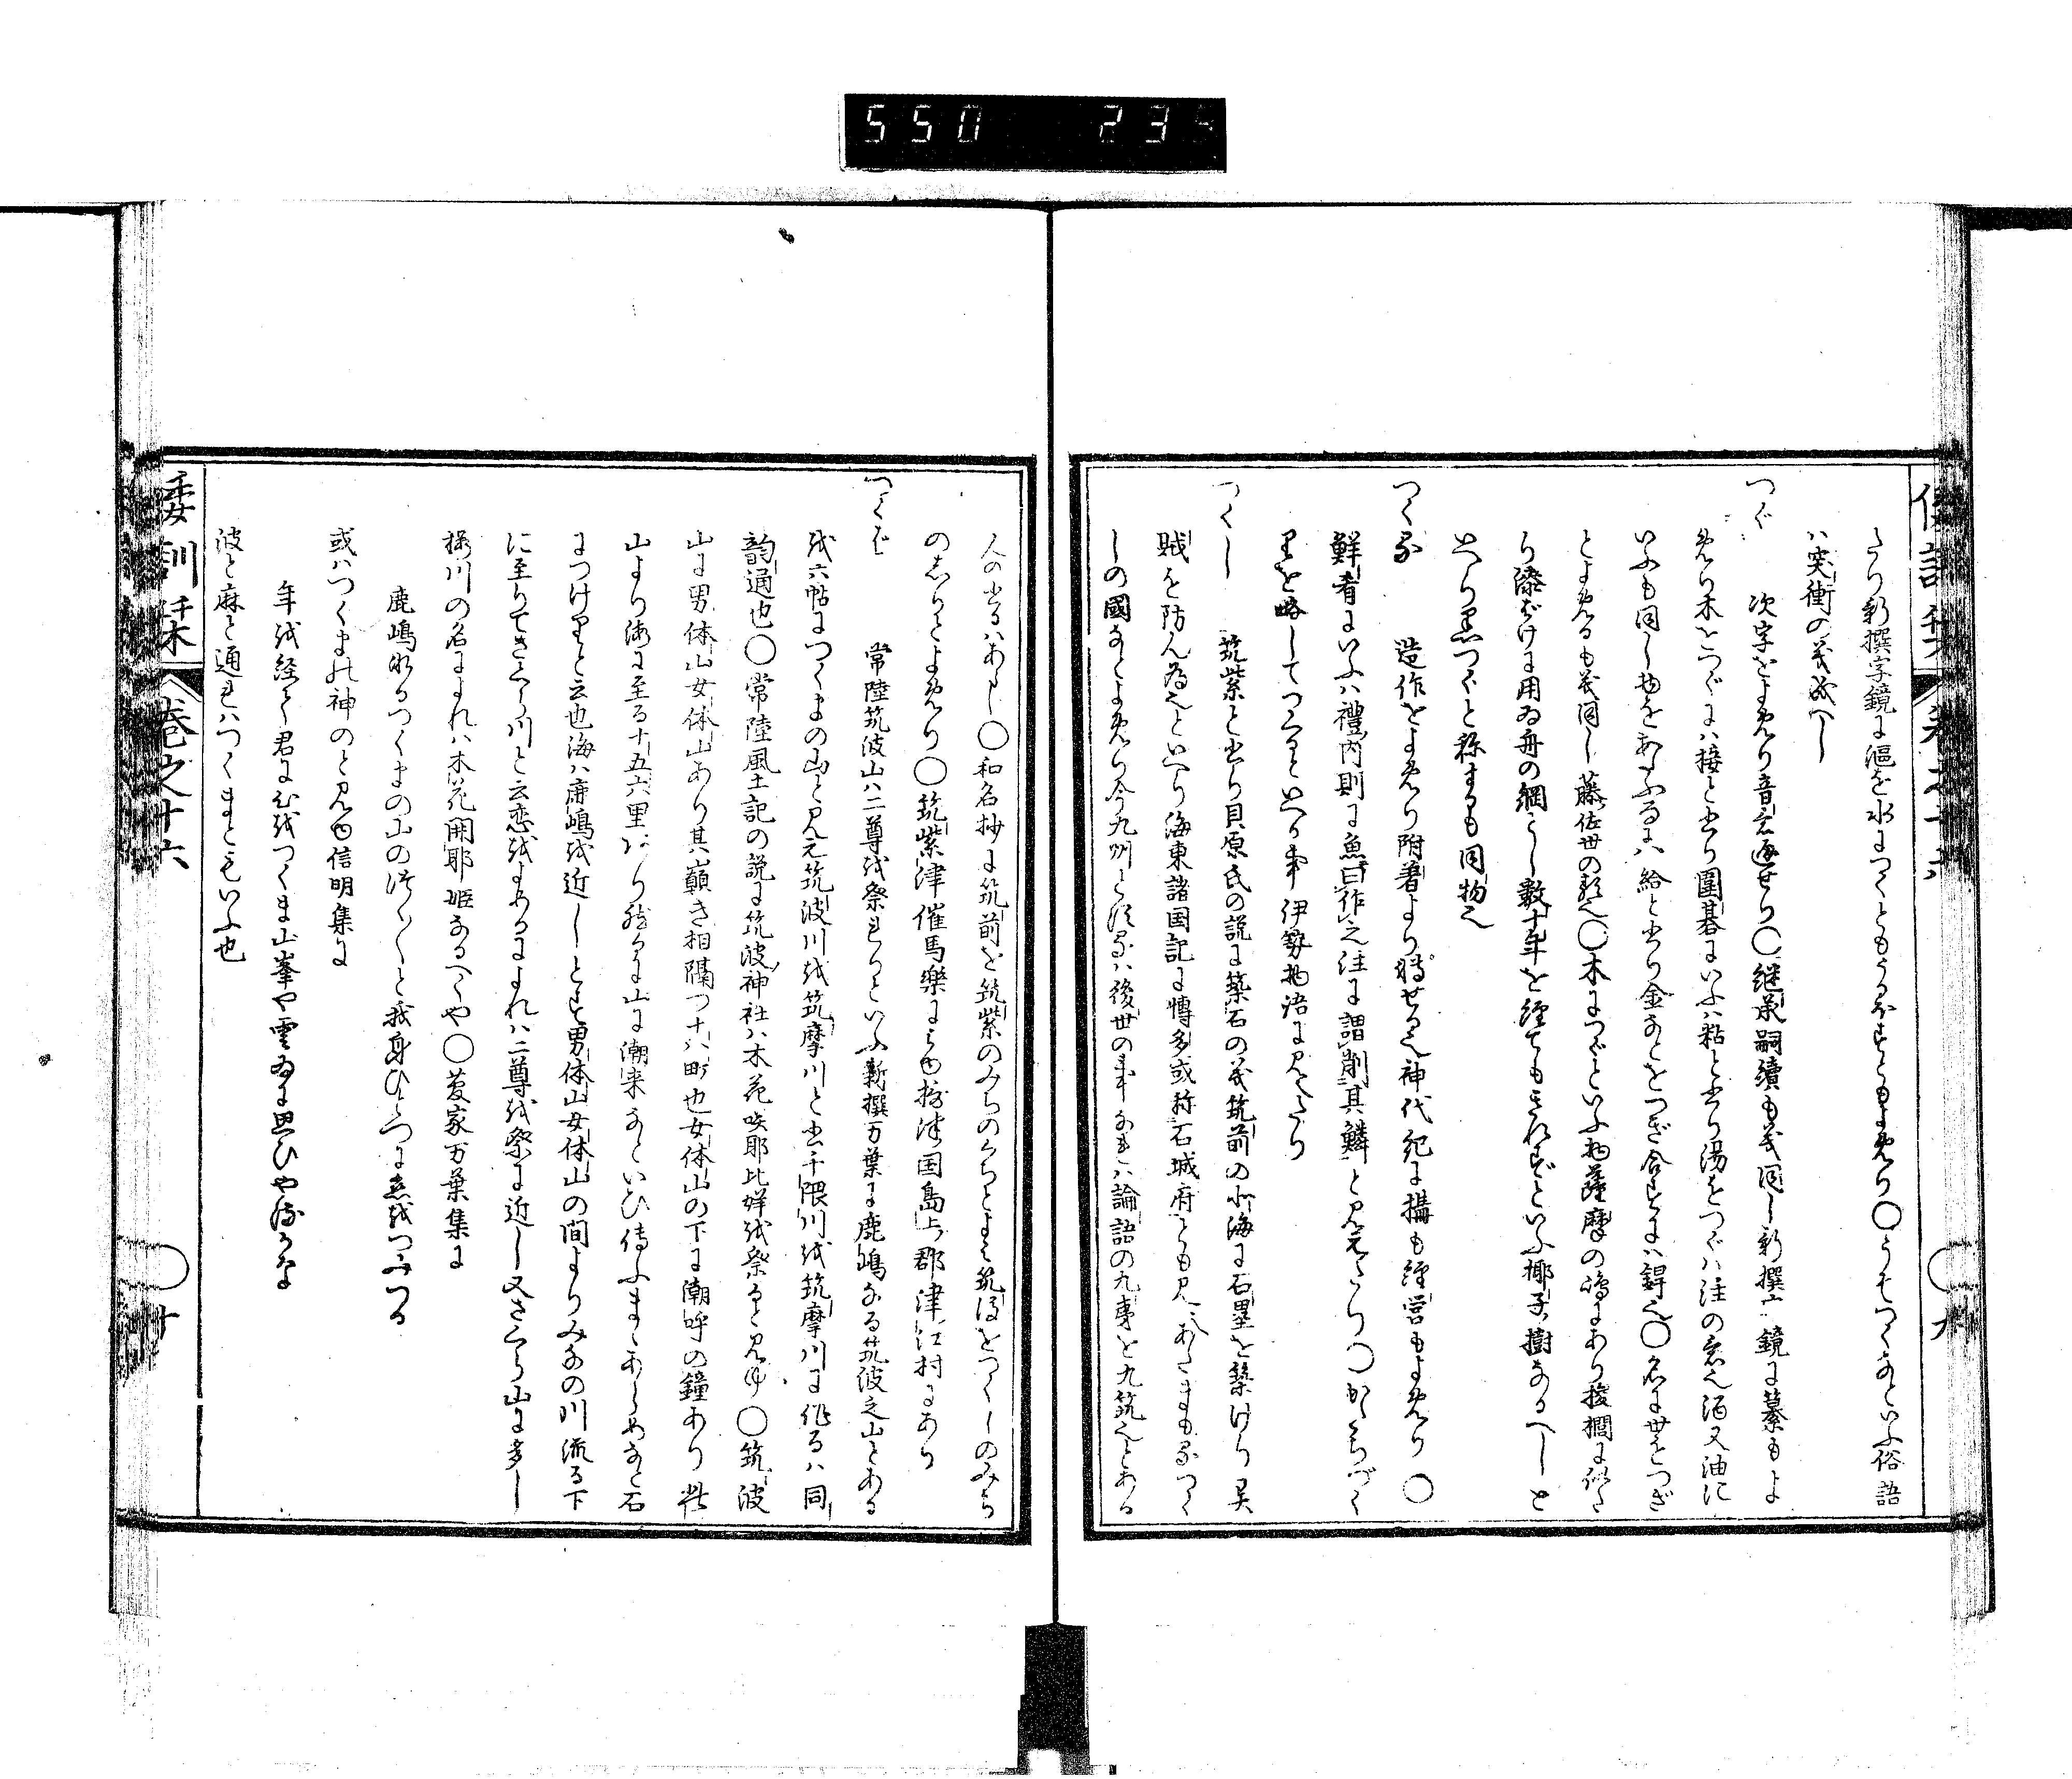 550 235
たり新撰字鏡に漚を水につくともうるほすともよめり○うそつくなといふ俗語
ハ突衝の義成へし
つぐ 次字をよめり音意通せり○継承嗣續も義同し新撰字鏡に纂もよ
めり木をつぐにハ接と書り圍碁にいふハ粘と書り湯をつぐハ注の意也酒又油に
いふも同し物をあたふるにハ給と書り金なとをつぎ合すにハ銲也○名に世をつぎ
とよめるも義同し藤佐世の類也○木につぐといふ物薩摩の嶋にあり椶櫚に似た
り漆ばけに用ゐ舟の綱とし數十年を經てもきれずといふ椰子樹なるへしと
いへり黒つぐと称するも同物也
つくる 造作をよめり附着より轉せる也神代紀に搆も經営もよめり○
鮮者にいふハ禮内則に魚曰作之注に謂削其鱗と見えたり○かたちづく
りを略してつくるといへる事伊勢物語に見えたり
つくし 筑紫と書り貝原氏の説に築石の義筑前の北海に石壘を築けり異
賊を防ん為也といへり海東諸国記に博多或称石城府とも見えあさまもるつく
しの國なとよめり今九州を須るハ後世の事なれハ論語の九夷を九筑也とある
人の書るハあやし○和名抄に筑前を筑紫のみちのくちとよみ筑後をつくしのみち
のしりとよめり○筑紫津催馬樂にみゆ摂津国島上郡津江村にあり
つくば 常陸筑波山ハ二尊を祭れりといふ新撰万葉に鹿嶋なる筑波之山とある
を六帖につくまの山と見え筑波川を筑摩川と書千隈川を筑摩川に作るハ同
韵通也○常陸風土記の説に筑波神社ハ木花咲耶比咩を祭ると見ゆ○筑波
山に男体山女体山あり其巓き相隔つ十八町也女体山の下に潮呼の鐘あり此
山より海に至る十五六里はり然るに山に潮来なといひ傳ふまゝあしめなと石
につけりと云也海ハ鹿嶋を近しとす男体山女体山の間よりみなの川流る下
に至りてさくら川と云恋をよめるによれハ二尊を祭に近し又さくら山に多し
桜川の名によれハ木花開耶姫なるへくや○菅家万葉集に
鹿嶋なるつくまの山のつく〳〵と我身ひとつに恋をつみつる
或ハつくまの神のと見ゆ信明集に
年を経て君に恋をつくま山峯や雲ゐに思ひや海らな
波と麻と通れハつくまともいふ也
倭訓栞 巻之十六 ○九
倭訓栞 巻之十六 ○十